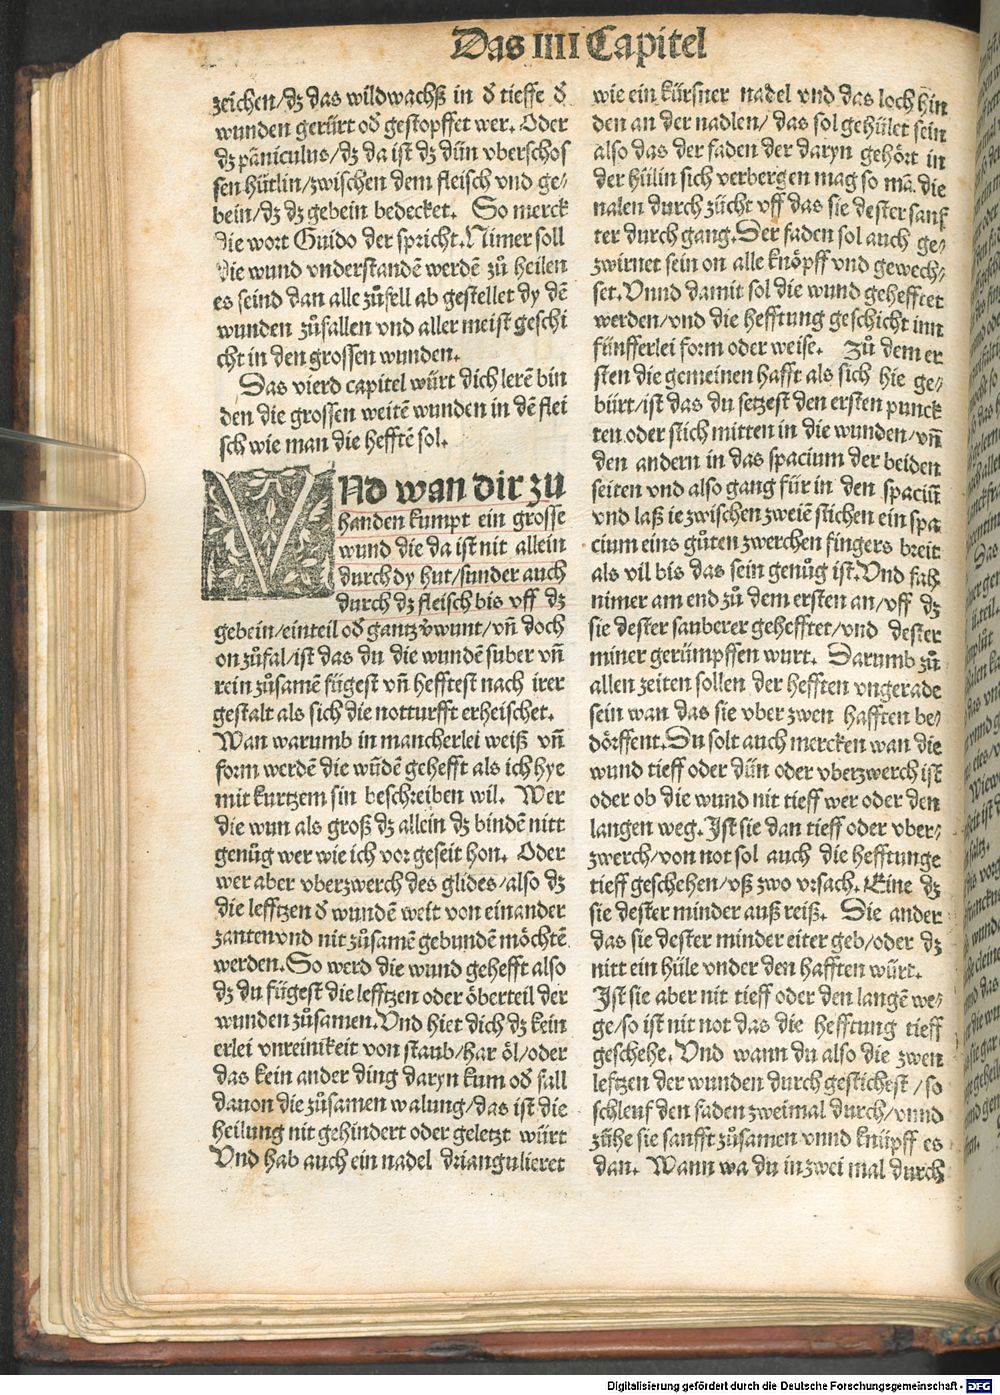 Das IIII Capitel
zeichen/dz das wildwachß in d̕ tieffe d̕
wunden gerürt od̕ gestopffet wer. Oder
dz pāniculus/dz da ist dz dün vberschos
sen hütlin/zwischen dem fleisch vnd ge⸗
bein/dz dz gebein bedecket. So merck
die wort Guido der spricht. Nimer soll
die wund vnderstandē werdē zů heilen
es seind dan alle zůfell ab gestellet dy dē
wunden zůfallen vnd aller meist geschi
cht in den grossen wunden.
Das vierd capitel würt dich lerē bin
den die grossen weitē wunden in dē flei
sch wie man die hefftē sol.
VNd wan dir zu
handen kumpt ein grosse
wund die da ist nit allein
durch dy hut/sunder auch
durch dz fleisch bis vff dz
gebein/einteil od̕ gantz v̕wunt/vn̄ doch
on zůfal/ist das du die wundē suber vn̄
rein zůsamē fügest vn̄ hefftest nach irer
gestalt als sich die notturfft erheischet.
Wan warumb in mancherlei weiß vn̄
form werdē die wūdē gehefft als ich hye
mit kurtzem sin beschreiben wil. Wer
die wun als groß dz allein dz bindē nitt
genůg wer wie ich vor geseit hon. Oder
wer aber vberzwerch des glides/also dz
die lefftzen d̕ wundē weit von einander
zanten vnd nit zůsamē gebundē möchtē
werden. So werd die wund gehefft also
dz du fügest die lefftzen oder öberteil der
wunden zůsamen. Vnd hiet dich dz kein
erlei vnreinikeit von staub/har öl/oder
das kein ander ding daryn kum od̕ fall
dauon die zůsamen walung/das ist die
heilung nit gehindert oder geletzt würt
Vnd hab auch ein nadel driangulieret
wie ein kürsner nadel vnd das loch hin
den an der nadlen/ das sol gehület sein
also das der faden der daryn gehört in
der hülin sich verbergen mag so mā die
nalen durch zücht vff das sie dester sanf
ter durch gang. Der faden sol auch ge⸗
zwirnet sein on alle knöpff vnd gewech⸗
set. Vnnd damit sol die wund gehefftet
werden/vnd die hefftung geschicht inn
fünfferlei form oder weise. Zů dem er
sten die gemeinen hafft als sich hie ge⸗
bürt/ist das du setzest den ersten punck
ten oder stich mitten in die wunden/vn̄
den andern in das spacium der beiden
seiten vnd also gang für in den spaciū
vnd laß ie zwischen zweiē stichen ein spa
cium eins gůten zwerchen fingers breit
als vil bis das sein genůg ist. Vnd fah
nimer am end zů dem ersten an/vff dz
sie dester sauberer gehefftet/vnd dester
miner gerümpffen wurt. Darumb zů
allen zeiten sollen der hefften vngerade
sein wan das sie vber zwen hafften be⸗
dörffent. Du solt auch mercken wan die
wund tieff oder dün oder vberzwerch ist
oder ob die wund nit tieff wer oder den
langen weg. Ist sie dan tieff oder vber⸗
zwerch/von not sol auch die hefftunge
tieff geschehen/vß zwo vrsach. Eine dz
sie dester minder auß reiß. Die ander
das sie dester minder eiter geb/oder dz
nitt ein hüle vnder den hafften würt.
Ist sie aber nit tieff oder den langē we⸗
ge/so ist nit not das die hefftung tieff
geschehe. Vnd wann du also die zwen
leftzen der wunden durch gestichest/so
schleuf den faden zweimal durch/vnnd
zühe sie sanfft zůsamen vnnd knüpff es
dan. Wann wa du in zwei mal durch
Digitalisierung gefördert durch die Deutsche Forschungsgemeinschaft - DFG